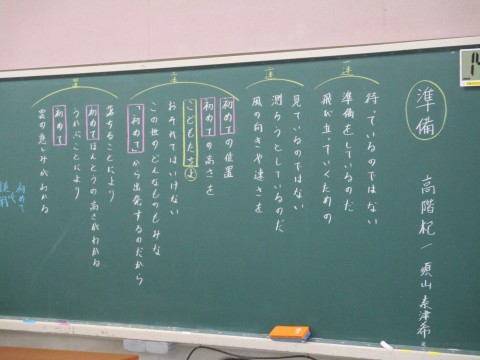 準備
高階杞一
一連
待っているのではない
準備をしているのだ
飛び立っていくための
二連
見ているのではない
測ろうとしているのだ
風の向きや速さを
三連
初めての位置
初めての高さを
こどもたちよ
おそれてはいけない
この世のどんなものもみな
「初めて」から出発するのだから
四連
落ちることにより
初めてほんとうの高さがわかる
うかぶことにより
初めて
雲の悲みがわかる
初めて